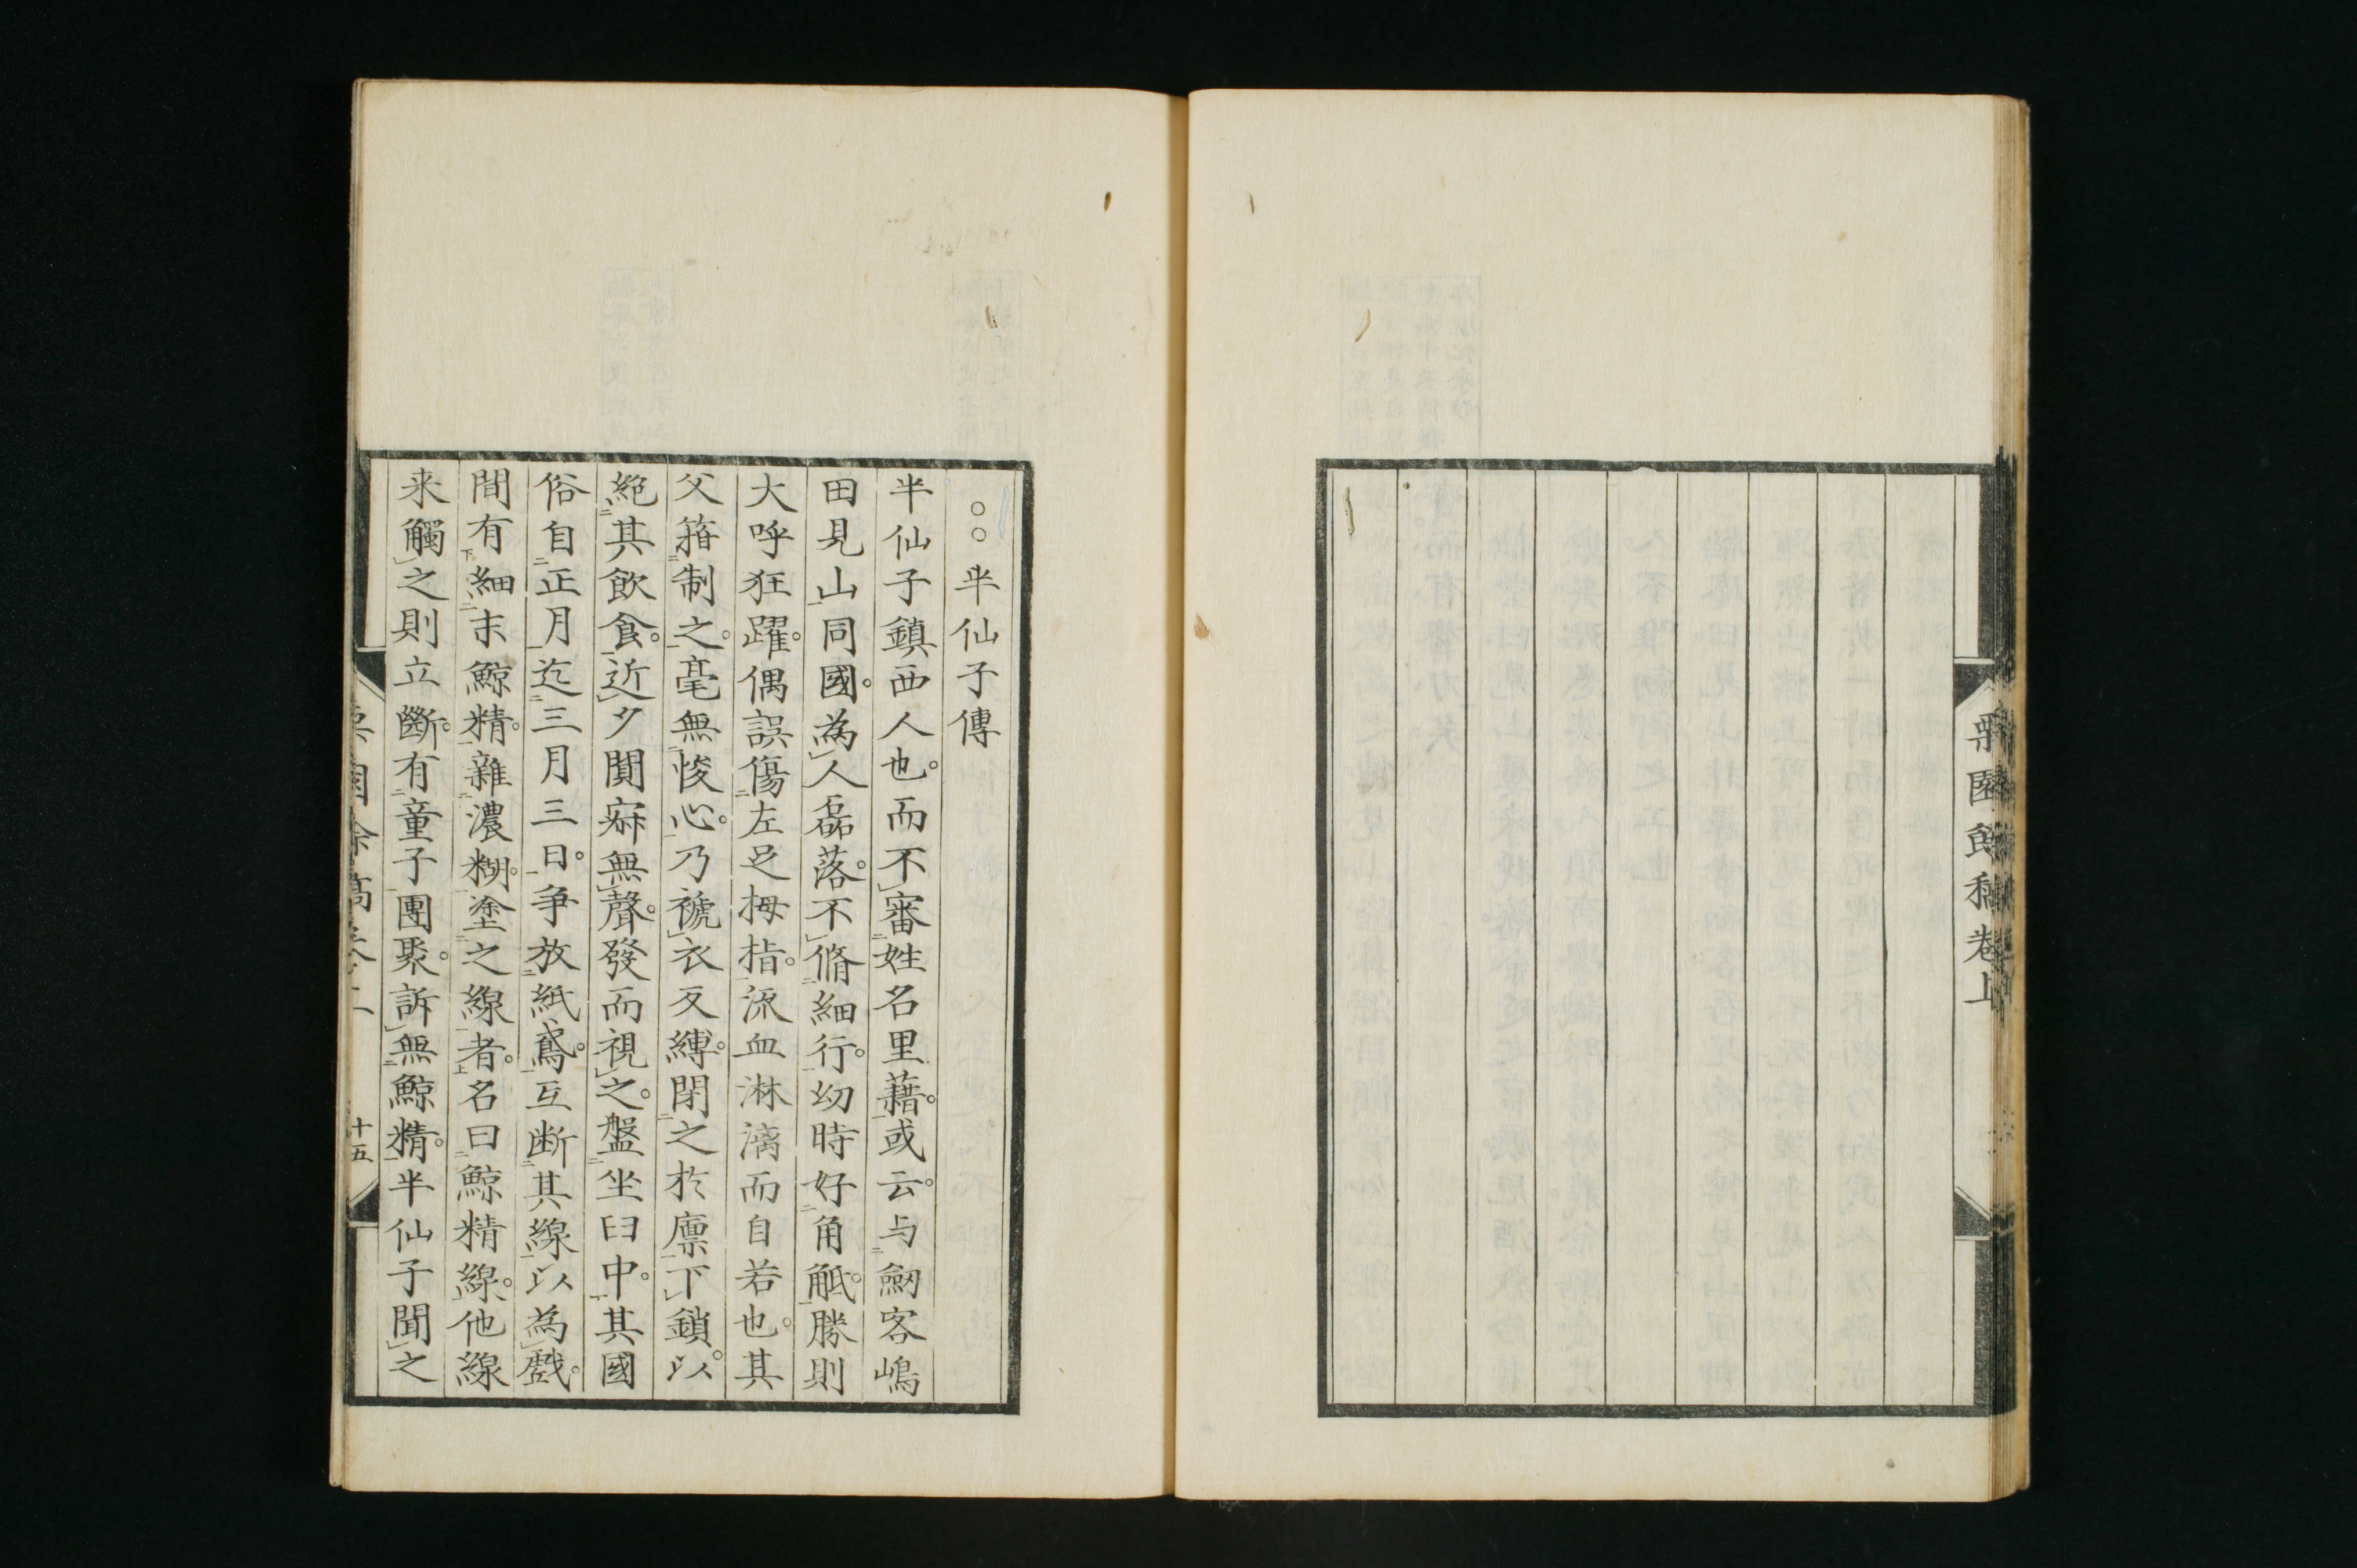 栗園鮐稿卷上
○○半仙子傳
半仙子鎮西人也。而不審姓名里藉。或云。与劔客嶋
田見山同國。為人磊落。不脩細行。幼時好角觝。勝則
大呼狂躍。偶誤傷左足拇指。流血淋漓而自若也。其
父箝制之。毫無悛心。乃褫衣反縛。閉之於廪下鎖。以
絕其飲食。近夕闃寂無聲。發而視之。盤坐臼中。其國
俗自正月迄三月三日。爭放紙鳶。互断其線以為戲。
間有細末鯨精。雜濃糊。塗之線者。名曰鯨精線。他線
来觸之則立斷。有童子團聚。訴無鯨精。半仙子聞之
十五